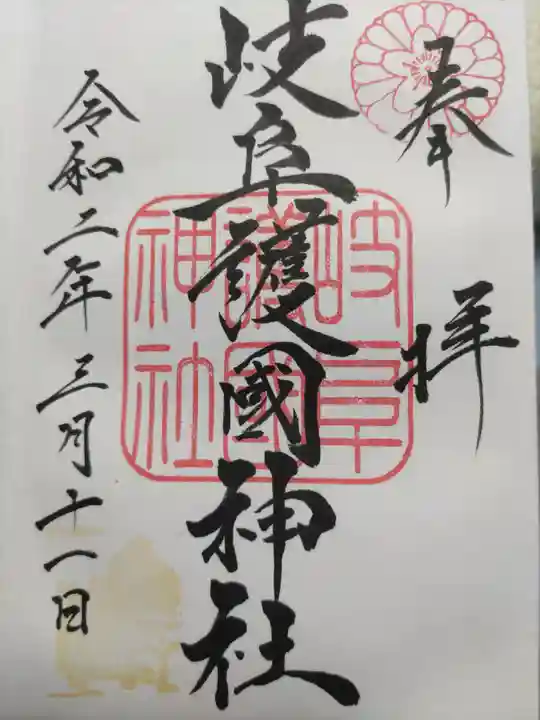 奉拝
岐阜護國神社
岐阜
護國
神社
令和二年三月十一日